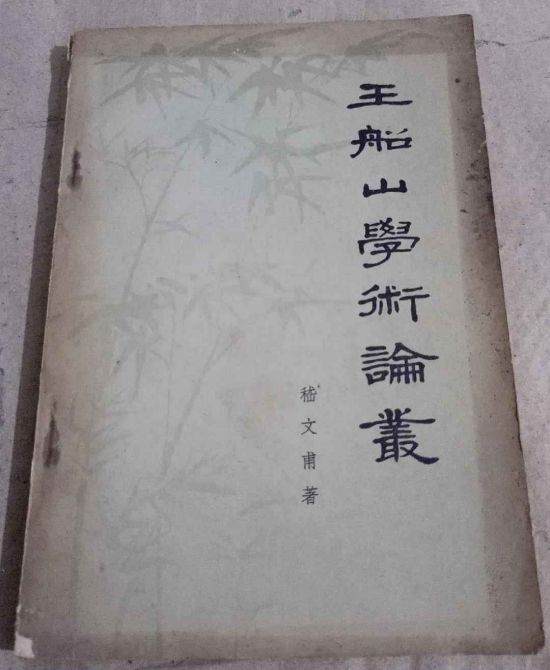 王船山學術論叢
嵇文甫著